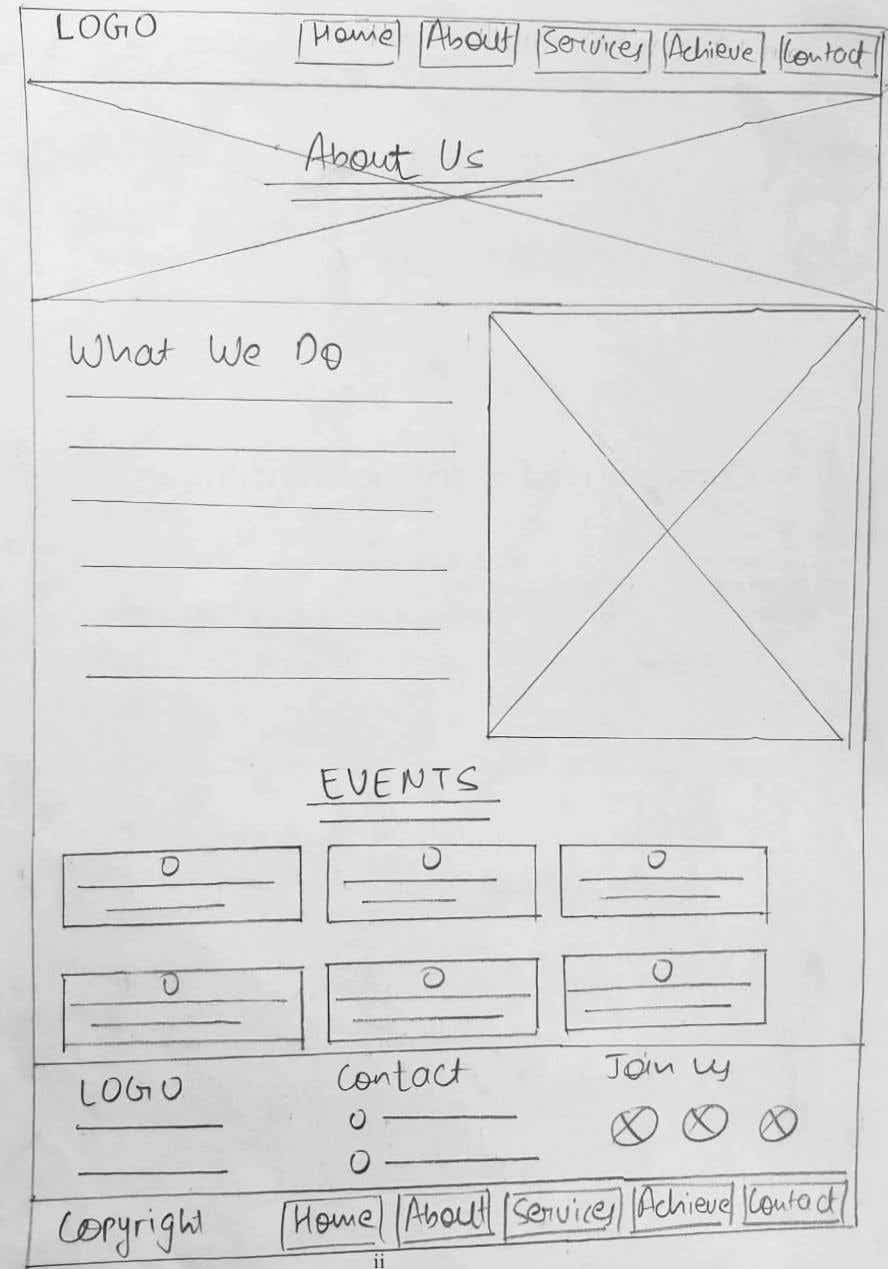 LOGO Home About Services Achieve Contact
About Us
What We Do
EVENTS
LOGO Contact Join us
Copyright Home About Services Achieve Contact
ii